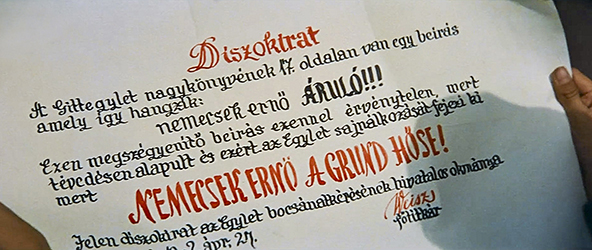 Diszokirat
A Gittegylet nagykönyvének 17. oldalan van egy beirás
amely így hangzik:
nemecsek ernő ÁRULÓ!!!
Ezen megszégyenitő beirás ezennel érvénytelen, mert
tévedésen alapult és ezért az Egylet sajnálkozását fejezi ki
mert
NEMECSEK ERNŐ A GRUND HŐSE!
Jelen diszokirat az Egylet bocsánatkérésének hivatalos okmánya
Weisz
2 ápr. 27.